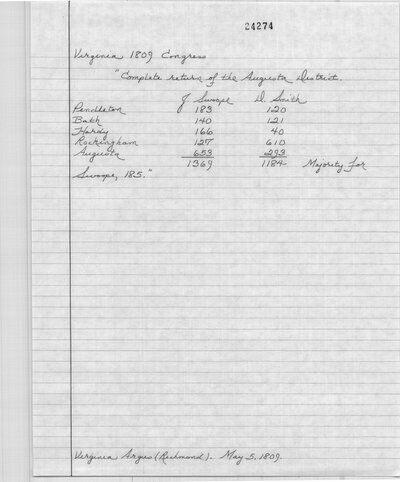 24274
Virginia 1809 Congress
"Complete return of the Augusta District.
J Swoope D. Smith
Pendleton 183 120
Bath 140 121
Hardy 166 40
Rockingham 127 610
Augusta 653 293
1369 1184 Majority for
Swoope, 185."
Virginia Argus (Richmond). May 5, 1809.